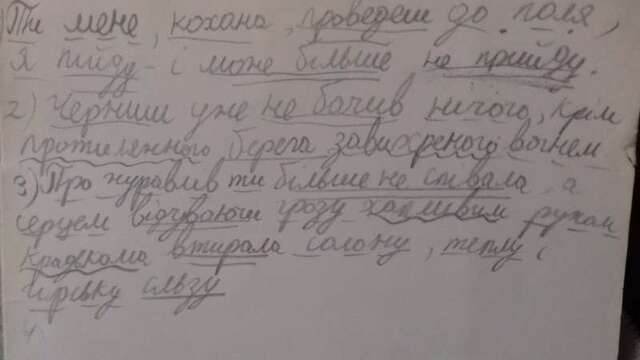 1) Ти мене, кохана, проведеш до поля,
я піду - і може більше не прийду.
2) Черниш уже не бачив нічого, крім
протилежного берега завихреного вогнем
3) Про журавлів ти більше не співала, а
серцем відчуваючи грозу хапливим рухом
крадькома втирала солону, теплу і
гірьку сльзу
4)